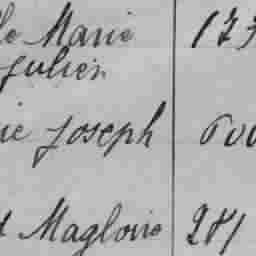 le Marie 173
Julien
ie Joseph 600
t Magloire 281